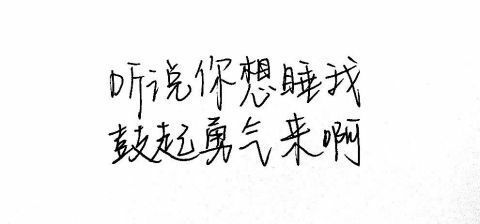 听说你想睡我
鼓起勇气来啊